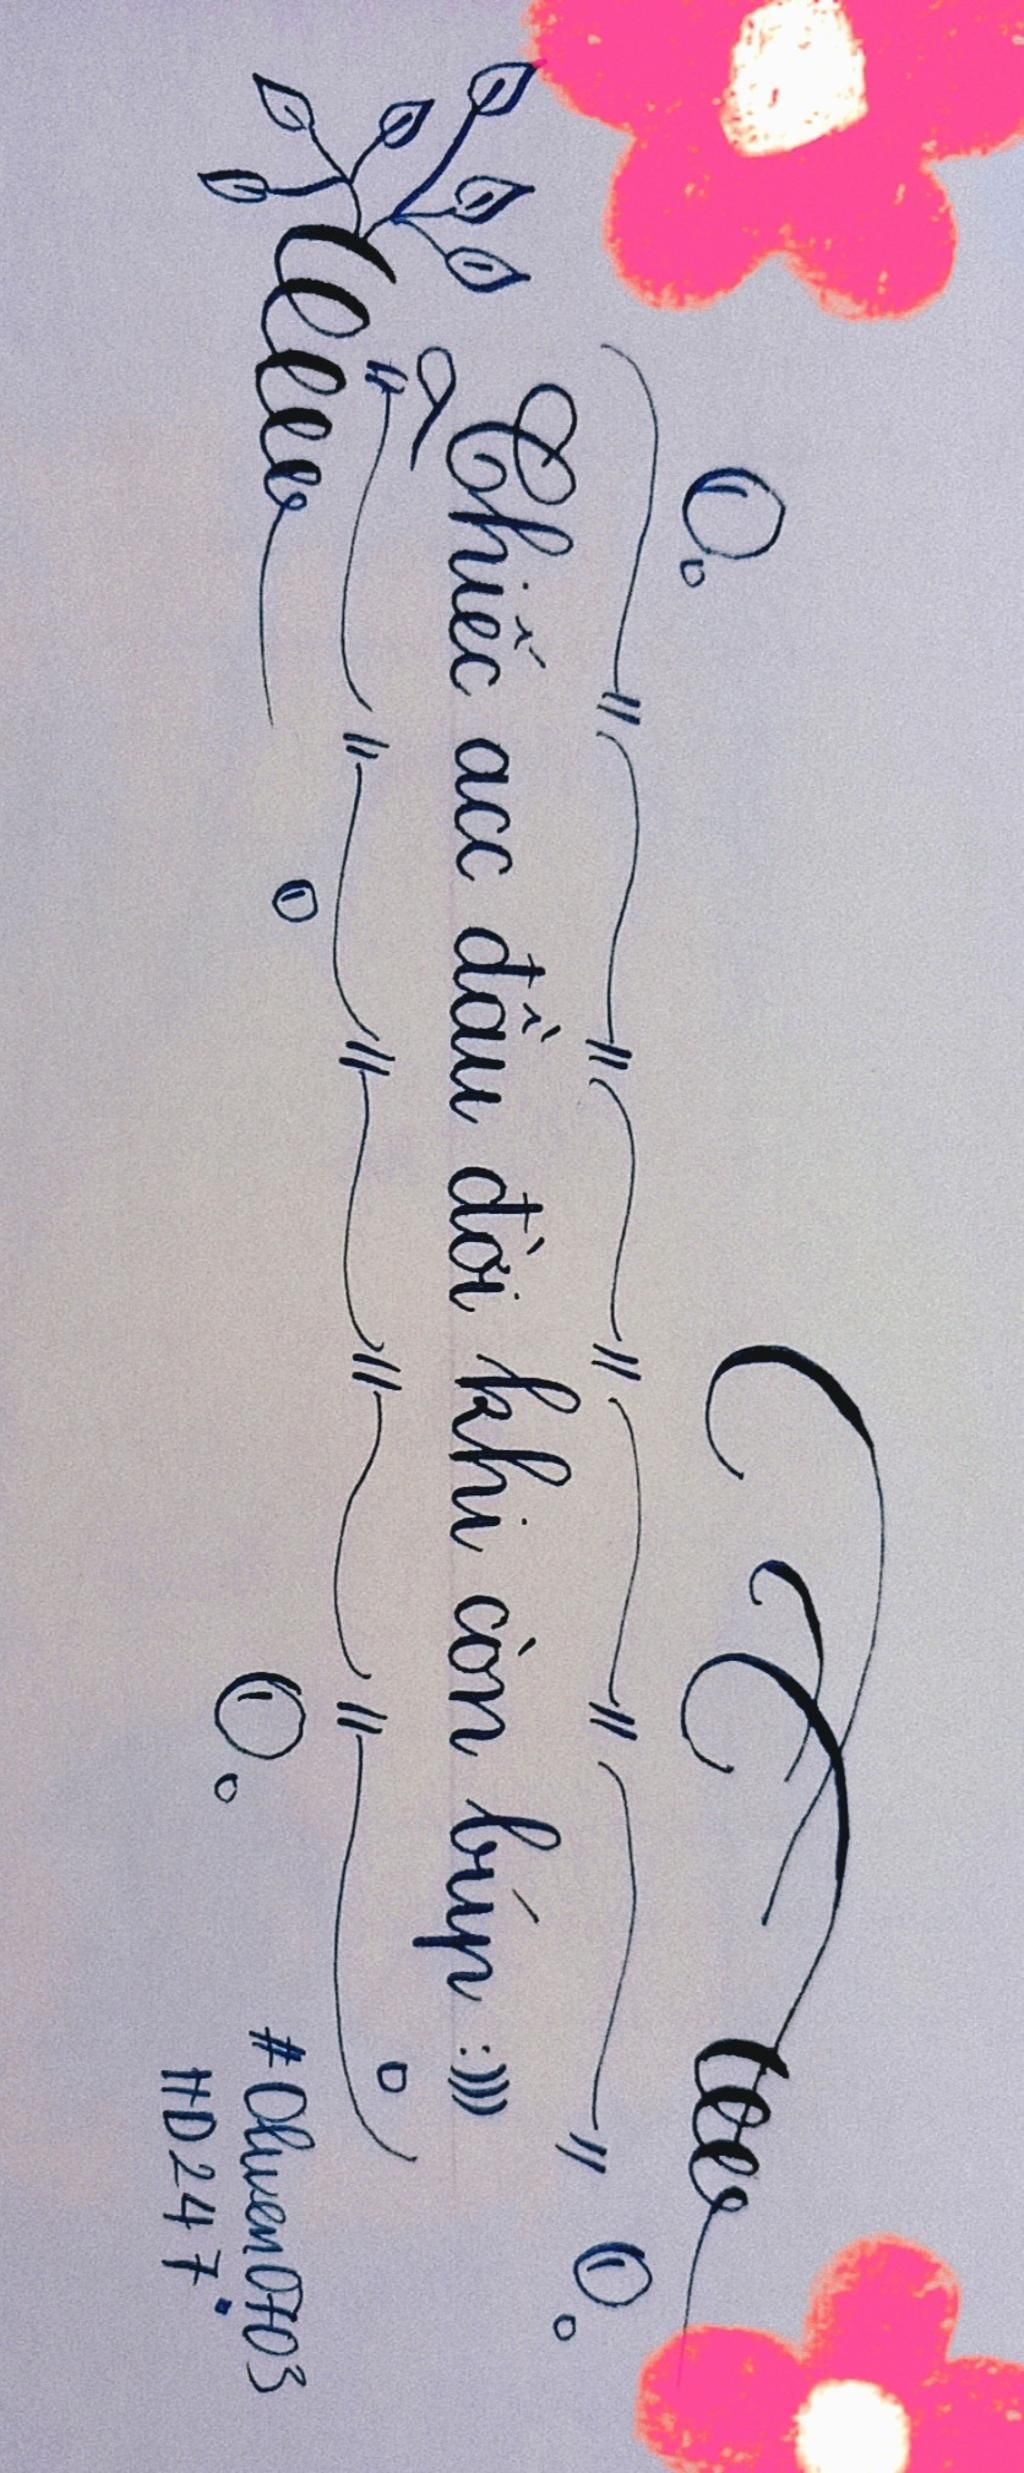 Chiếc acc đầu đời khi còn búp :)))
#Ohuen0703
HD247